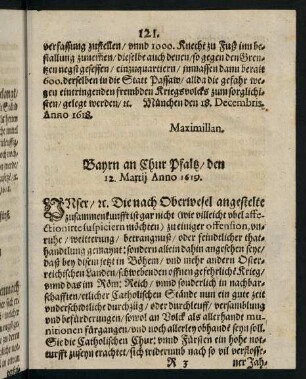 121.
verfassung zustellen / vnnd 1000. Knecht zu Fuß inn be-
stallung zunemen / dieselbe auch denen / so gegen den Gren-
tzen negst gesessen / einzuquartiern / jnmassen dann berait
600. derselben in die Statt Passaw / allda die gefahr we-
gen eintringenden frembden Kriegsvolcks zum sorglichi-
sten / gelegt werden / ꝛc. München den 18. Decembris.
Anno 1618.
Maximilian.
Bayrn an Chur Pfaltz / den
12. Martij Anno 1619.
VNser / ꝛc. Die nach Oberwesel angestelte
zusammenkunfft ist gar nicht (wie villeicht vbel affe-
ctionirte suspiciern möchten) zu einiger offension, vn-
ruhe / weitterung / betrangnuß / oder feindtlicher that-
handtlung gemaynt: sondern allein dahin angesehen seye /
daß bey disen jetzt in Böhem / vnd mehr andern Oster-
reichischen Landen / schwebenden offnen gefehrliche Krieg /
vnnd das im Röm: Reich / vnnd sonderlich in nachbar-
schafften etlicher Catholischen Stände nun ein gute zeit
vnderschidliche durchzüg / oder durchleuff / versamblung
vnd befürderungen / sowol an Volck als allerhandt mu-
nitionen fürgangen / vnd noch allerley obhand seyn soll.
Sie die Catholischen Chur: vnnd Fürsten ein hohe not-
turfft zuseyn erachtet / sich widerumb nach so vil verflosse-
R 3 ner Jah-